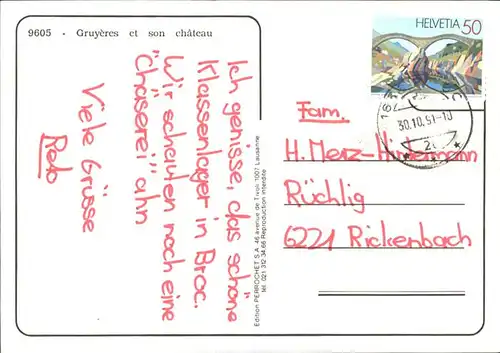 9605 - Gruyères et son château
HELVETIA 50
30.10.91-10
Ich geniesse, das schöne
Klassenlager in Broc.
Wir schauten noch eine
"Chäserei" ahn
Viele Grüsse
Reto
Edition PERROCHET S.A. 46 avenue de Tivoli 1007 Lausanne
Tél. 021 312 34 66 Reproduction interdite
Fam.
H. Merz-Hintermann
Rüchlig
6221 Rickenbach